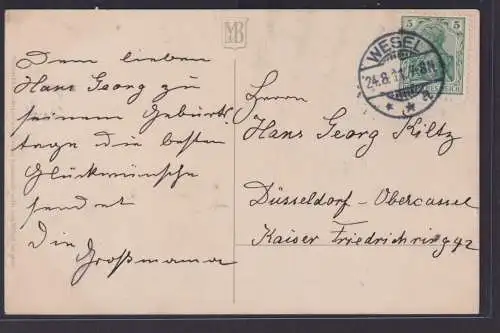 MB
Dem lieben
Hans Georg zu
seinem Geburts
tage die besten
Glückwünsche
sendet
die
Großmama
5 5
WESEL
24.8.11
Herrn
Hans Georg Kiltz
Düsseldorf-Obercassel
Kaiser Friedrichring 92